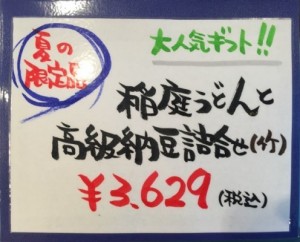 夏の
限定品
大人気ギフト!!
稲庭うどんと
高級納豆詰合せ(竹)
¥3,629(税込)